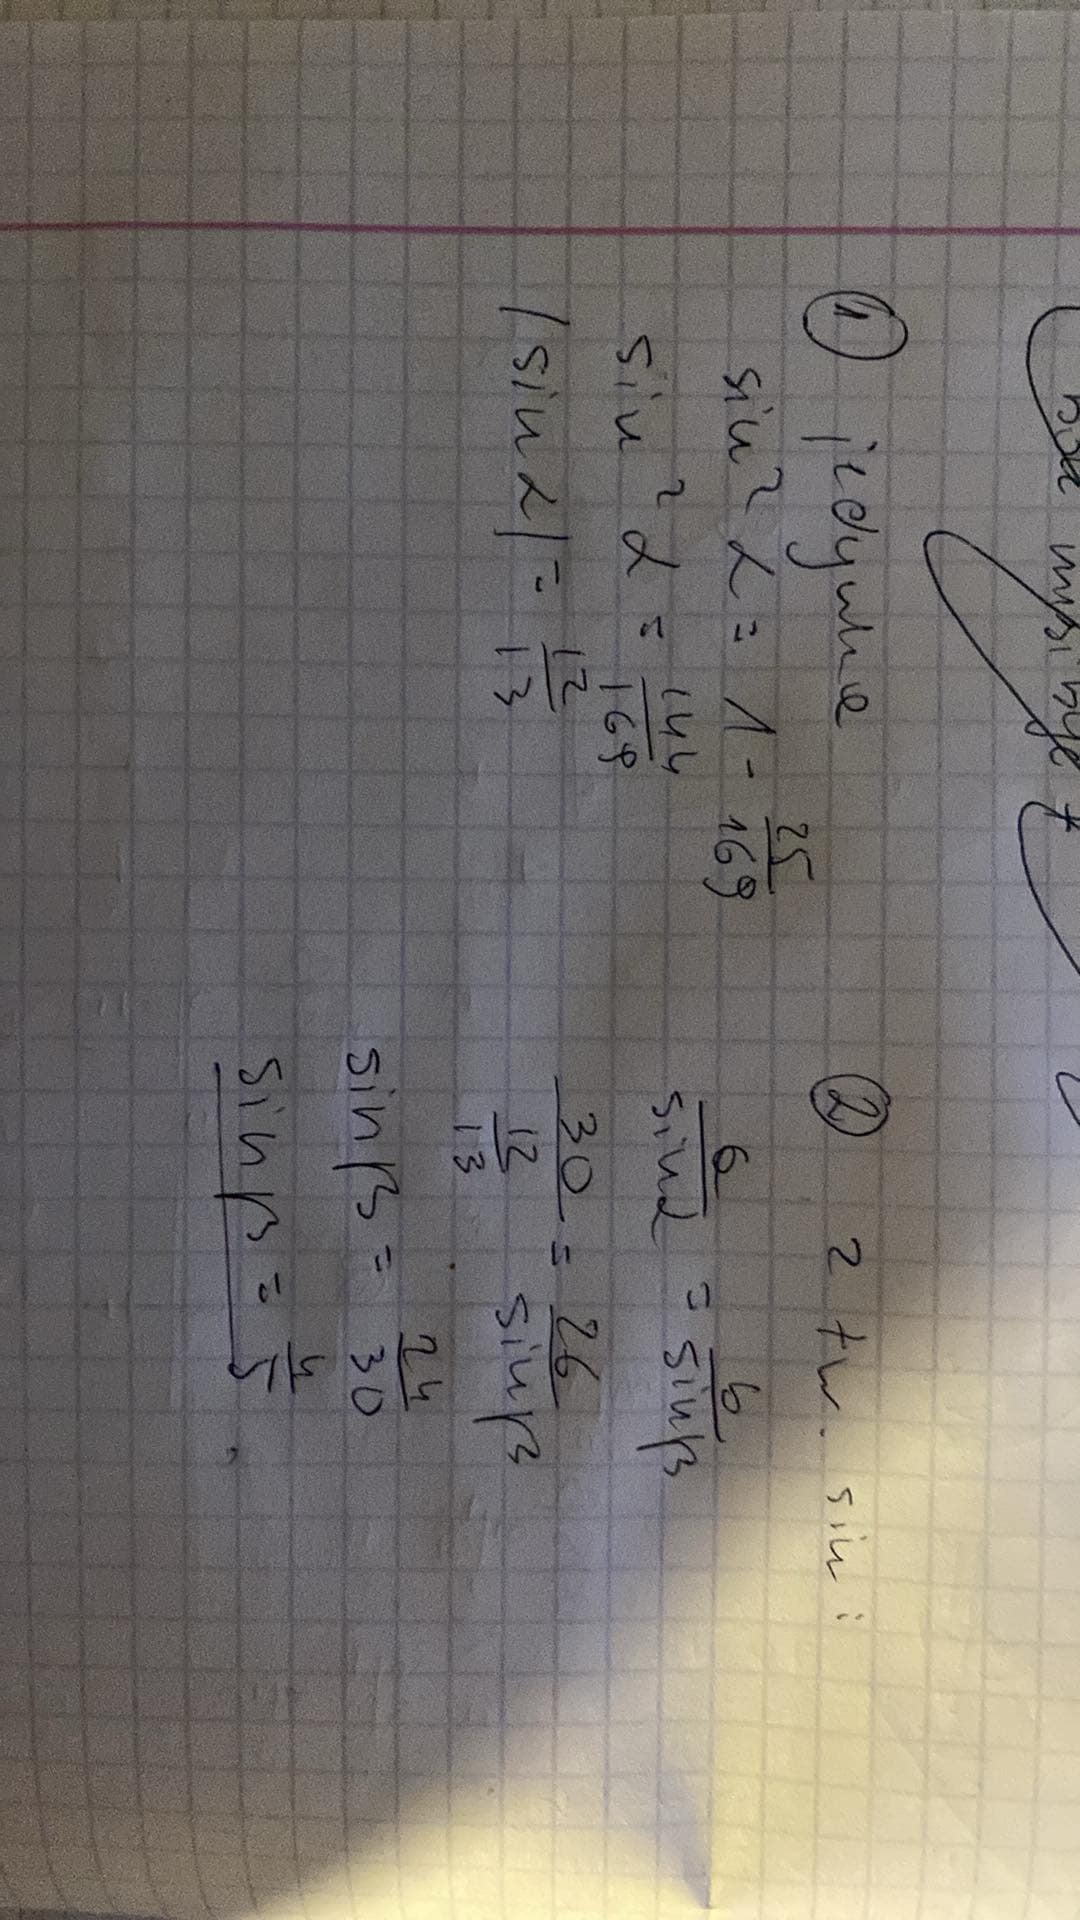 ① jedynka
sin²α = 1 - 25/169
sin²α = 144/169
|sin α| = 12/13
② z tw. sin:
a/sinα = b/sinβ
30/(12/13) = 26/sinβ
sinβ = 24/30
sinβ = 4/5